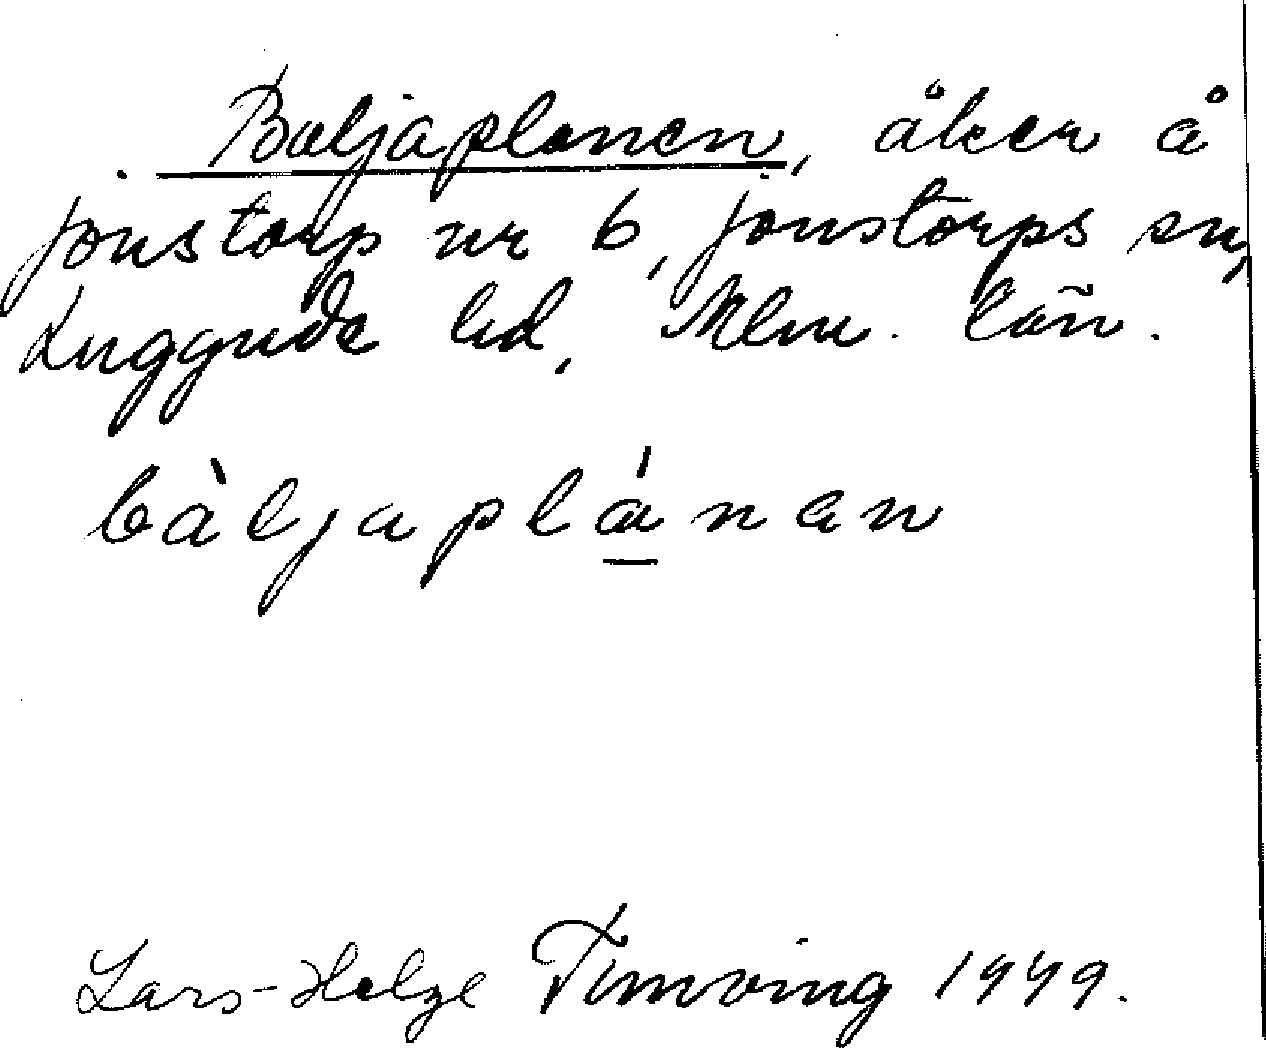 Baljaplanen, åker å
Jonstorp nr 6, Jonstorps sn,
Luggude hd, Mlm. län.
bàljaplánan
Lars-Helge Timving 1949.